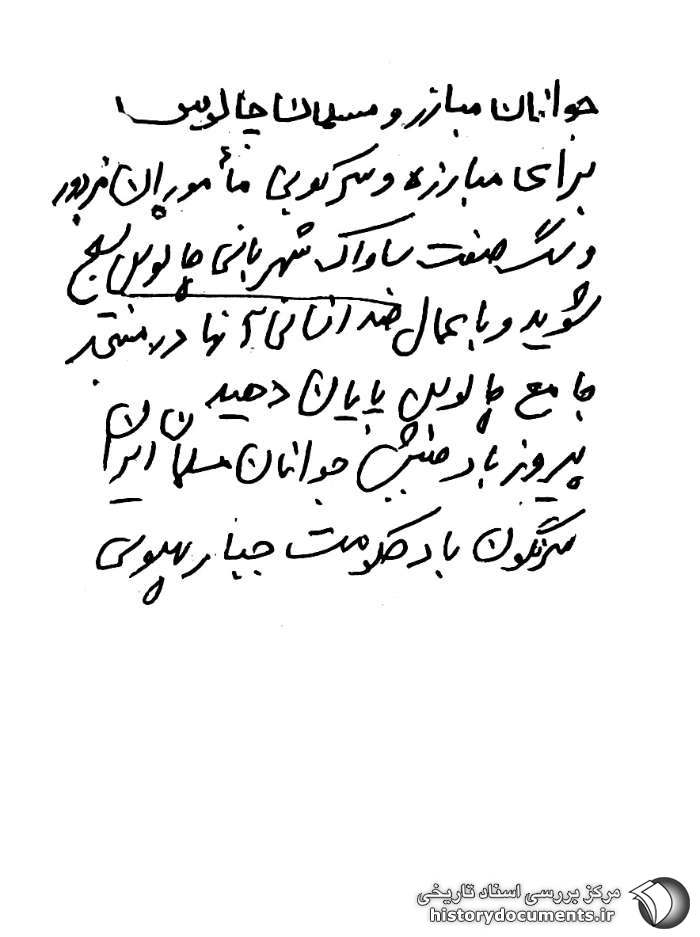 جوانان مبارز و مسلمان چالوس
برای مبارزه و سرکوبی مأموران مزدور
و سگ صفت ساواک شهربانی چالوس بسیج
شوید و با عمال ضد انسانی آنها در مسجد
جامع چالوس پایان دهید
پیروز باد جنبش جوانان مسلمان ایران
سرنگون باد حکومت جبار پهلوی
مرکز بررسی اسناد تاریخی
historydocuments.ir